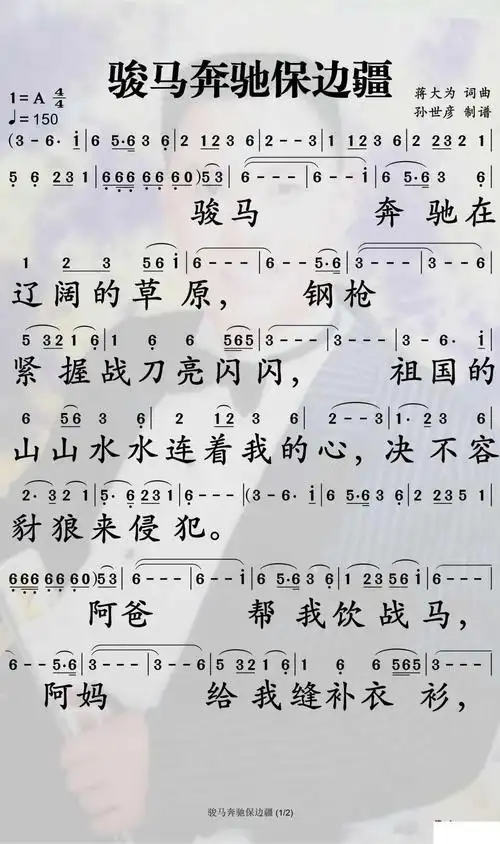 骏马奔驰保边疆
1=A 4/4
蒋大为 词曲
♩=150
孙世彦 制谱
(3-6·i|6 5·6 3 6|2 1 2 3 6|2--3|1 6 1 2 3 6|2 2 3 2 1|
5 6 2 3 1|666 666 6 0)53|6---|6--i|6 6·5 3 6|
骏马 奔驰在
1 2 3 56i|6---|6--5·6|3---|3--6|
辽阔的草原， 钢枪
5 3 2 1 6|1 6 6 565|3---|3---|3-6·i|
紧握战刀亮闪闪， 祖国的
6 56 3 6|2 12 3 6|2--3|1·2 3 6|
山山水水连着我的心，决不容
2·3 2 1 2|5·6 2 3 1|6---|(3-6·i|6 5·6 3 6|2 2 3 5 1|
豺狼来侵犯。
666 666 6 0)53|6---|6--i|6 56·5 3 6|1 2 3 56i|6---|
阿爸 帮我饮战马，
6--5·6|3---|3--6|5 3 2 1 6|1 6 6 565|3---|
阿妈 给我缝补衣衫，
骏马奔驰保边疆 (1/2)